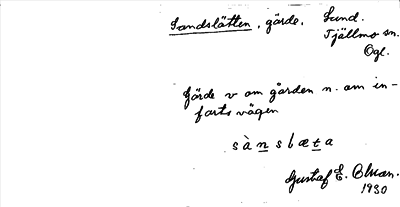 Sandslätten, gärde. Sund.
Tjällmo sn.
Ögl.
Gärde v om gården n. om in-
fartsvägen
sànslæta
Gustaf E. Olsson.
1930